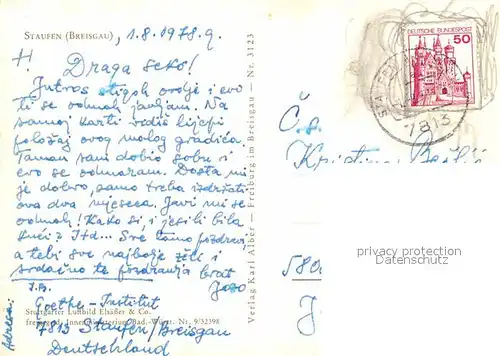 STAUFEN (BREISGAU) , 1.8.1978.g.
Draga seko!
Jutros stigoh ovdje i evo
ti se odmah javljam. Na
samoj karti vidiš lijepi
položaj ovog malog gradića.
Taman sam dobio sobu i
evo se odmaram. Dosta mi
je dobro, samo treba izdržati
ova dva mjeseca. Javi mi se
odmah! Kako si, i jesi li bila
kući? Itd... Sve tamo pozdravi
a tebi sve najbolje želi i
srdačno te pozdravlja brat
Jozo
Stuttgarter Luftbild Elsäßer & Co.
freigegeben Innenministerium Bad.-Württ. Nr. 9/32398
Adresa:
Goethe-Institut
7813 Staufen/Breisgau
Deutschland
Verlag Karl Alber — Freiburg im Breisgau — Nr. 3123
DEUTSCHE BUNDESPOST
50
7813
Č. s.
Kristina
privacy protection
VEROPAL.COM
580